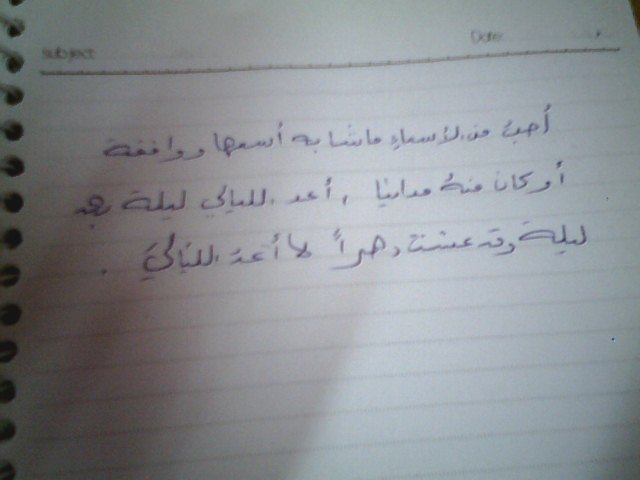 Subject
Date
أحبُّ من الأسماءِ ما شابه أسمها ووافقه
أو كان منهُ مدانيا , أعد الليالي ليلة بعد
ليلة وقد عشت دهراً لا أعدّ اللياليَ .